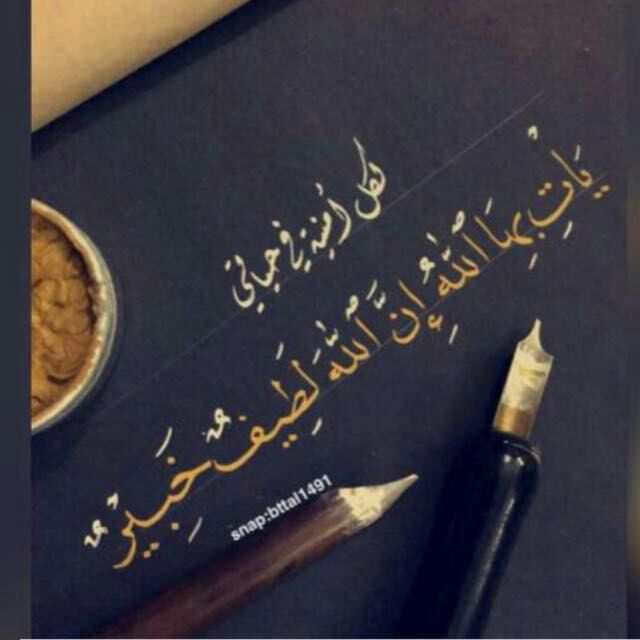 لكل أمنية في حياتي
يَأْتِ بِهَا اللَّهُ إِنَّ اللَّهَ لَطِيفٌ خَبِيرٌ
snap:bttal1491